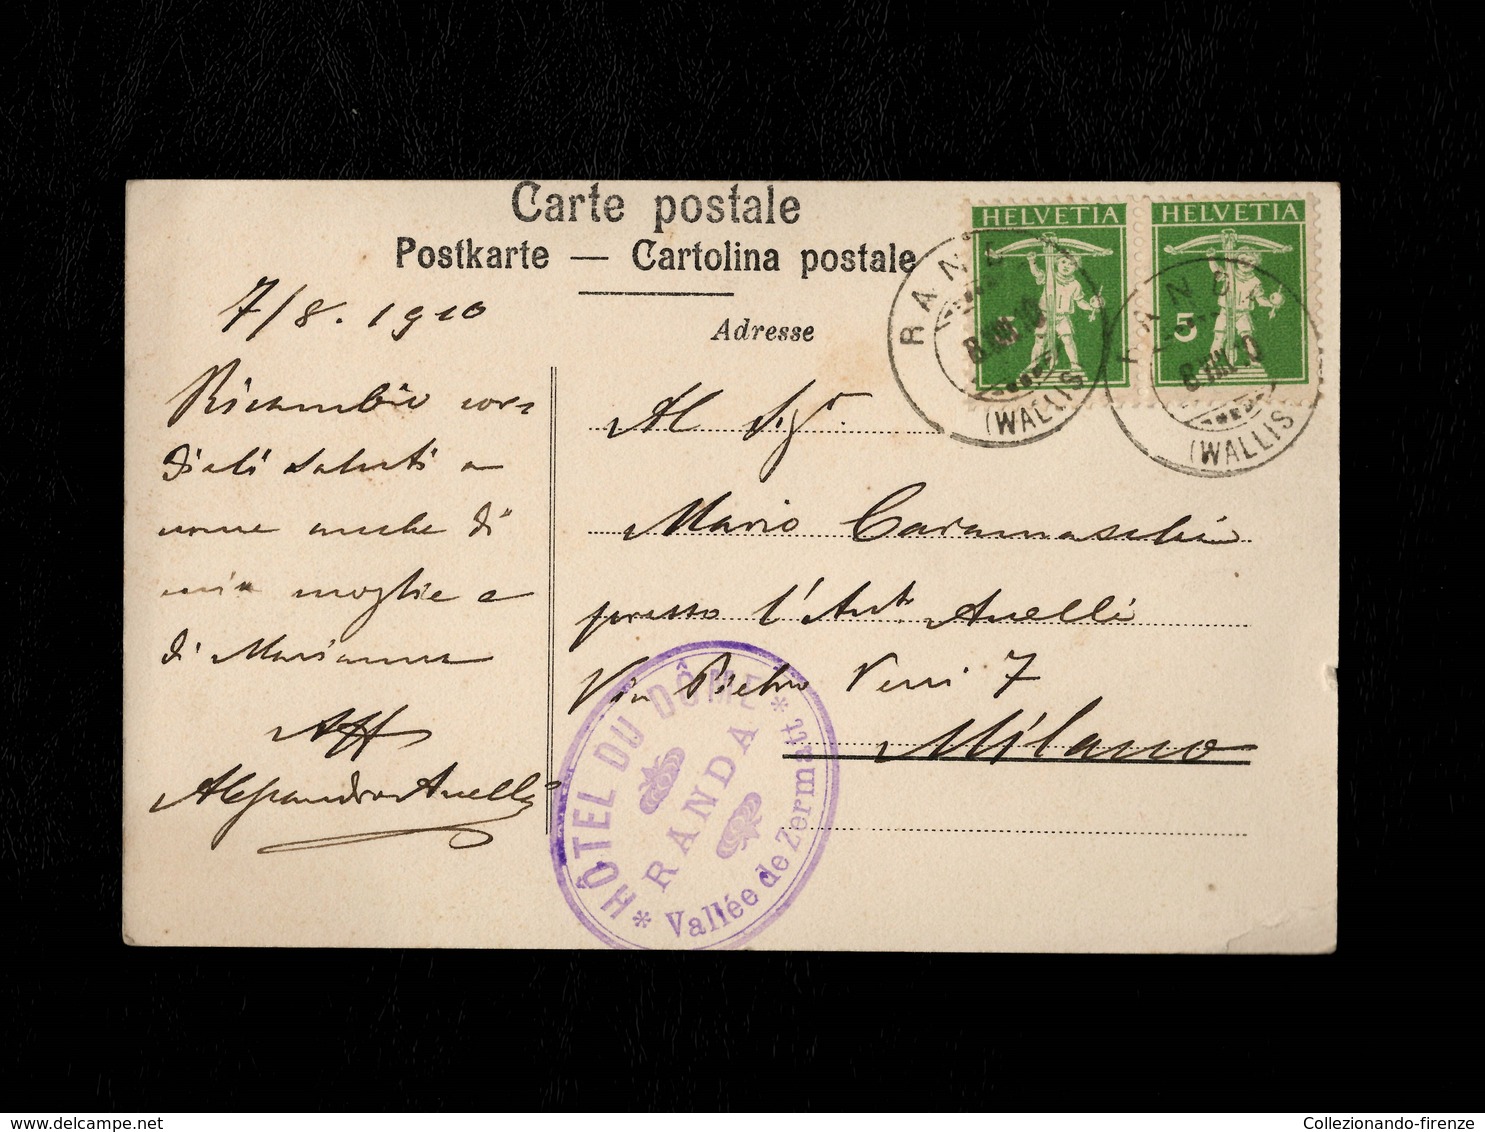 Carte postale
Postkarte — Cartolina postale
Adresse
HELVETIA
HELVETIA
5
RAND
8.VIII.10
(WALLIS
RAND
8.VIII.10
(WALLIS
7/8. 1910
Ricambio cor-
diali saluti a
nome anche di
mia moglie e
di Marianna
Aff
Alessandro Anelli
Al Sigr
Mario Caramaschi
presso l'Ant. Anelli
Via Pietro Verri 7
Milano
HÔTEL DU DÔME
RANDA
* Vallée de Zermatt *
Collezionando-firenze